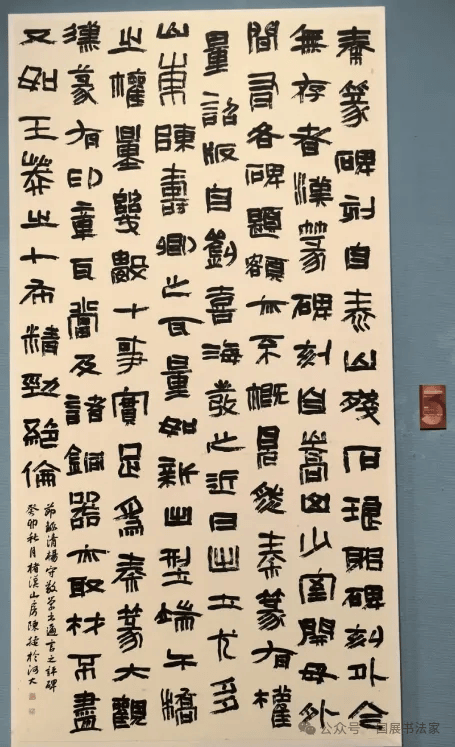 秦篆碑刻自泰山殘石琅邪碑刻外今
無存者漢篆碑刻自嵩山少室開母外
間各碑題額亦不概見然秦篆有權
量詔版自劉喜海發之近日出土尤多
山東陳壽卿之瓦量如新出型端午橋
之權量幾數十事實足為秦篆大觀
漢篆有印章瓦當及諸銅器亦取材不盡
又如王莽之十布精勁絕倫
節錄清楊守敬學書邇言之評碑
癸卯秋月楮溪山房陳於河大
公众号·国展书法家